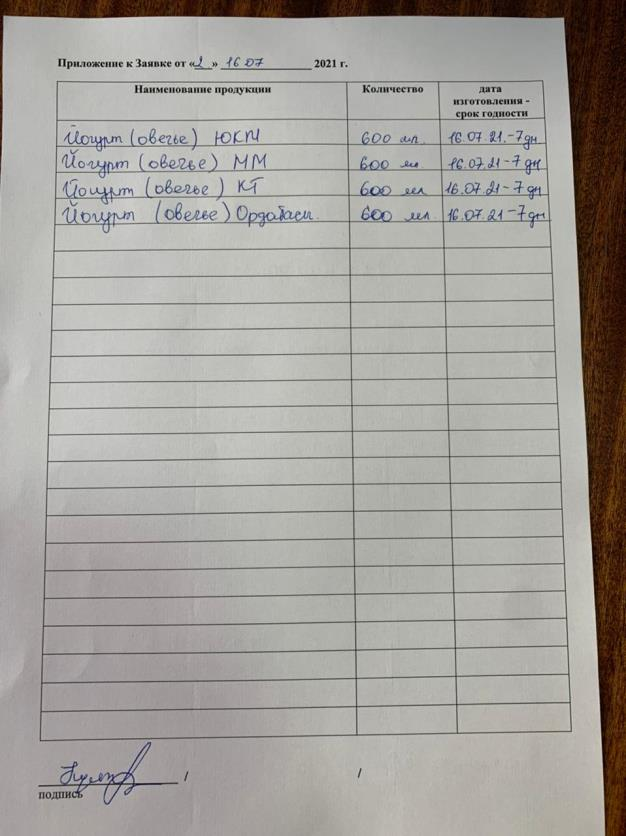 Приложение к Заявке от «2» 16.07 2021 г.
Наименование продукции Количество дата изготовления - срок годности
Йогурт (овечье) ЮКМ 600 мл. 16.07.21.-7дн
Йогурт (овечье) ММ 600 мл. 16.07.21-7 дн
Йогурт (овечье) КТ 600 мл 16.07.21-7 дн
Йогурт (овечье) Ордабасы. 600 мл 16.07.21-7дн
/ /
подпись